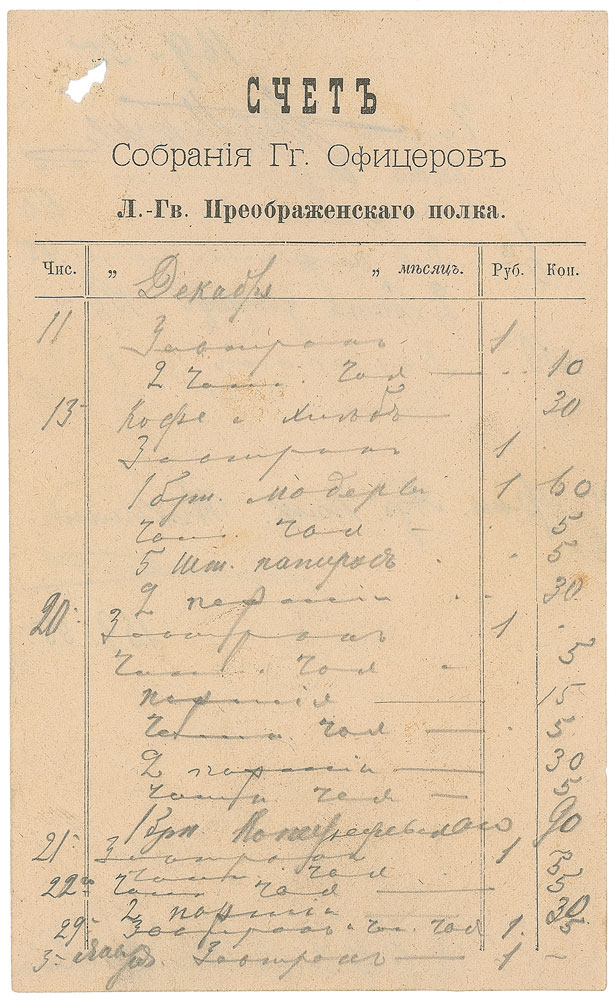 СЧЕТЪ
Собранія Гг. Офицеровъ
Л.-Гв. Преображенскаго полка.
Чис. „ Декабря „ мѣсяцъ. Руб. Коп.
11 Завтракъ 1 .
2 чаш. чая — .. 10
13 Кофе и хлѣбъ — 30
Завтракъ 1 .
1 бут. мадеры 1 60
чаш. чая - 5
5 шт. папиросъ . . 5
2 порціи . . 30
20 Завтракъ 1 .
чаш. чая - 5
порція — 15
чаш. чая — . 5
2 порціи — 30
чаш. чая — 5
1 бут. 90
21 Завтракъ 1
чаш. чая . 5
22 чаш. чая — 5
2 порціи — 30
29 Завтракъ и ча. чая 1. 5
3 Января Завтракъ — 1 –